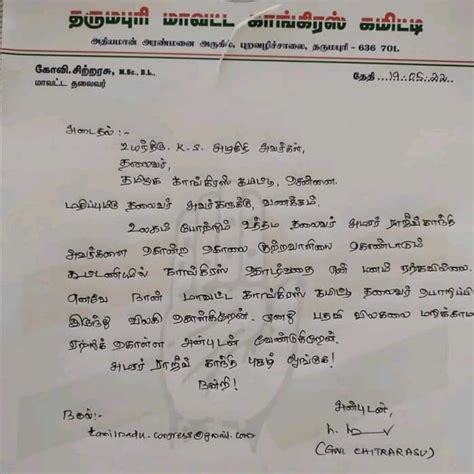 தருமபுரி மாவட்ட காங்கிரஸ் கமிட்டி
அதியமான் அரண்மனை அருகில், புறவழிச்சாலை, தருமபுரி - 636 701.
கோவி.சிற்றரசு, M.Sc., B.L.
மாவட்ட தலைவர்
தேதி...19.05.22...
அடைதல் :-
உயர்திரு. K.S. அழகிரி அவர்கள்,
தலைவர்,
தமிழக காங்கிரஸ் கமிட்டி, சென்னை.
மதிப்புமிகு தலைவர் அவர்களுக்கு, வணக்கம்.
உலகம் போற்றும் உத்தம தலைவர் அமரர் ராஜீவ்காந்தி
அவர்களை கொன்ற கொலை குற்றவாளியை கொண்டாடும்
கூட்டணியில் காங்கிரஸ் தொடர்வதை என் மனம் ஏற்கவில்லை.
எனவே நான் மாவட்ட காங்கிரஸ் கமிட்டி தலைவர் பொறுப்பில்
இருந்து விலகி கொள்கிறேன். எனது பதவி விலகலை மறுக்காமல்
ஏற்றுக் கொள்ள அன்புடன் வேண்டுகிறேன்.
அமரர் ராஜீவ் காந்தி புகழ் ஓங்குக!
நன்றி!
நகல்:-
அன்புடன்,
(GOVI CHITRARASU)